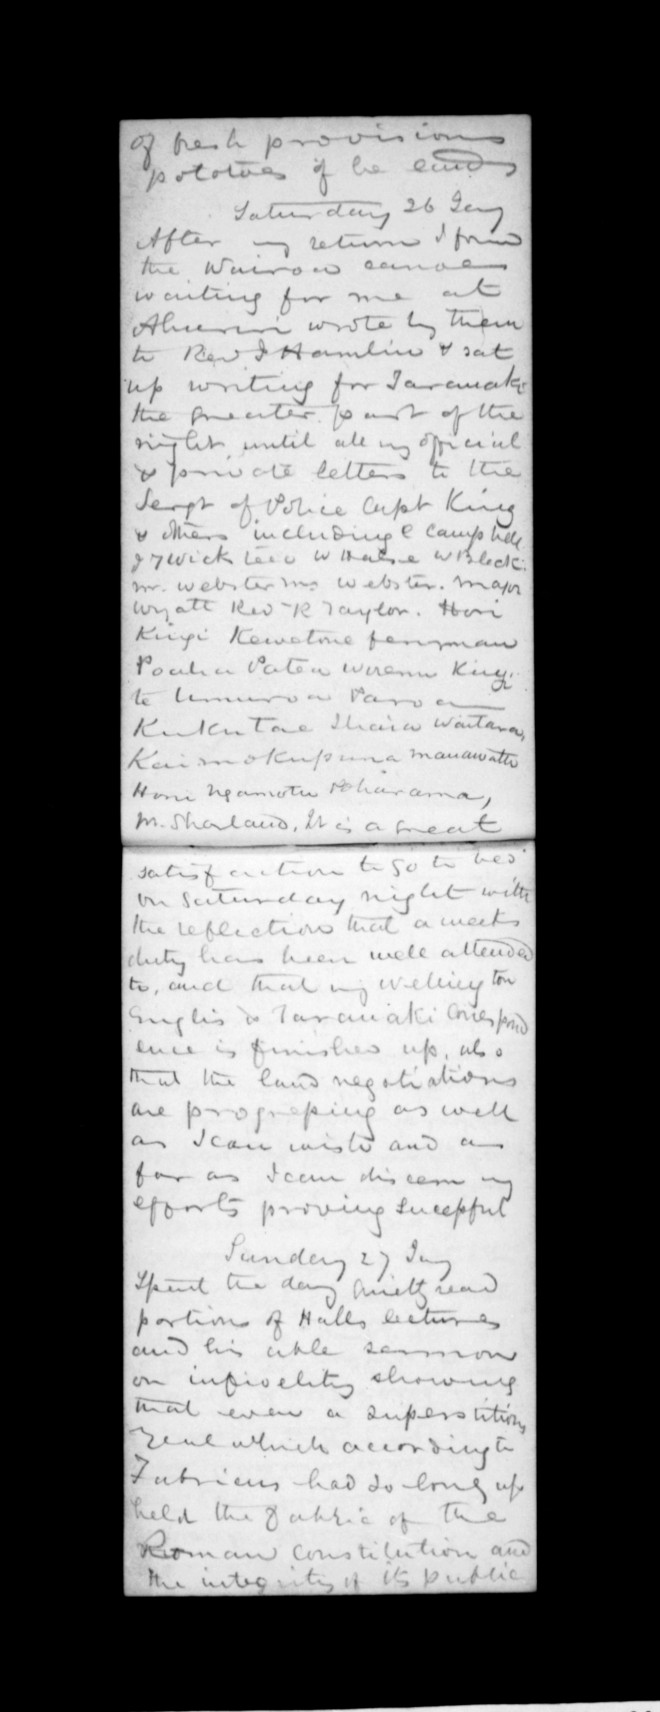 of fresh provisions
potatoes if he lands
Saturday 26 Jany
After my return I found
the Wairoa canoe
waiting for me at
Ahuriri wrote by them
to Rev J Hamlin & sat
up writing for Taranaki
the greater part of the
night until all my official
& private letters to the
Sergt of Police Capt King
& others including C Campbell
W Halse W Black
Mr. Webster Mrs Webster. Major
Wyatt Rev R Taylor. Hori
Kingi
Watene Patea Wiremu Kingi
te
Kukutae Ihaia Waitara,
Kaimokupuna Manawatu
Honi Ngamotu Wharama,
Mr. Sharland. It is a great
satisfaction to go to bed
on Saturday night with
the reflection that a weeks
duty has been well attended
to, and that my Wellington
Englis & Taranaki correspond
ence is finished up, also
that the land negotiations
are progressing as well
as I can wish and as
far as I can discern my
efforts proving sucessful
Sunday 27 Jany
Spent the day quietly read
portions of Halls lectures
and his able sermon
on infidelity showing
that even a superstitious
zeal which according to
Fabricius had so long up
held the fabric of the
Roman constitution and
the integrity of its public